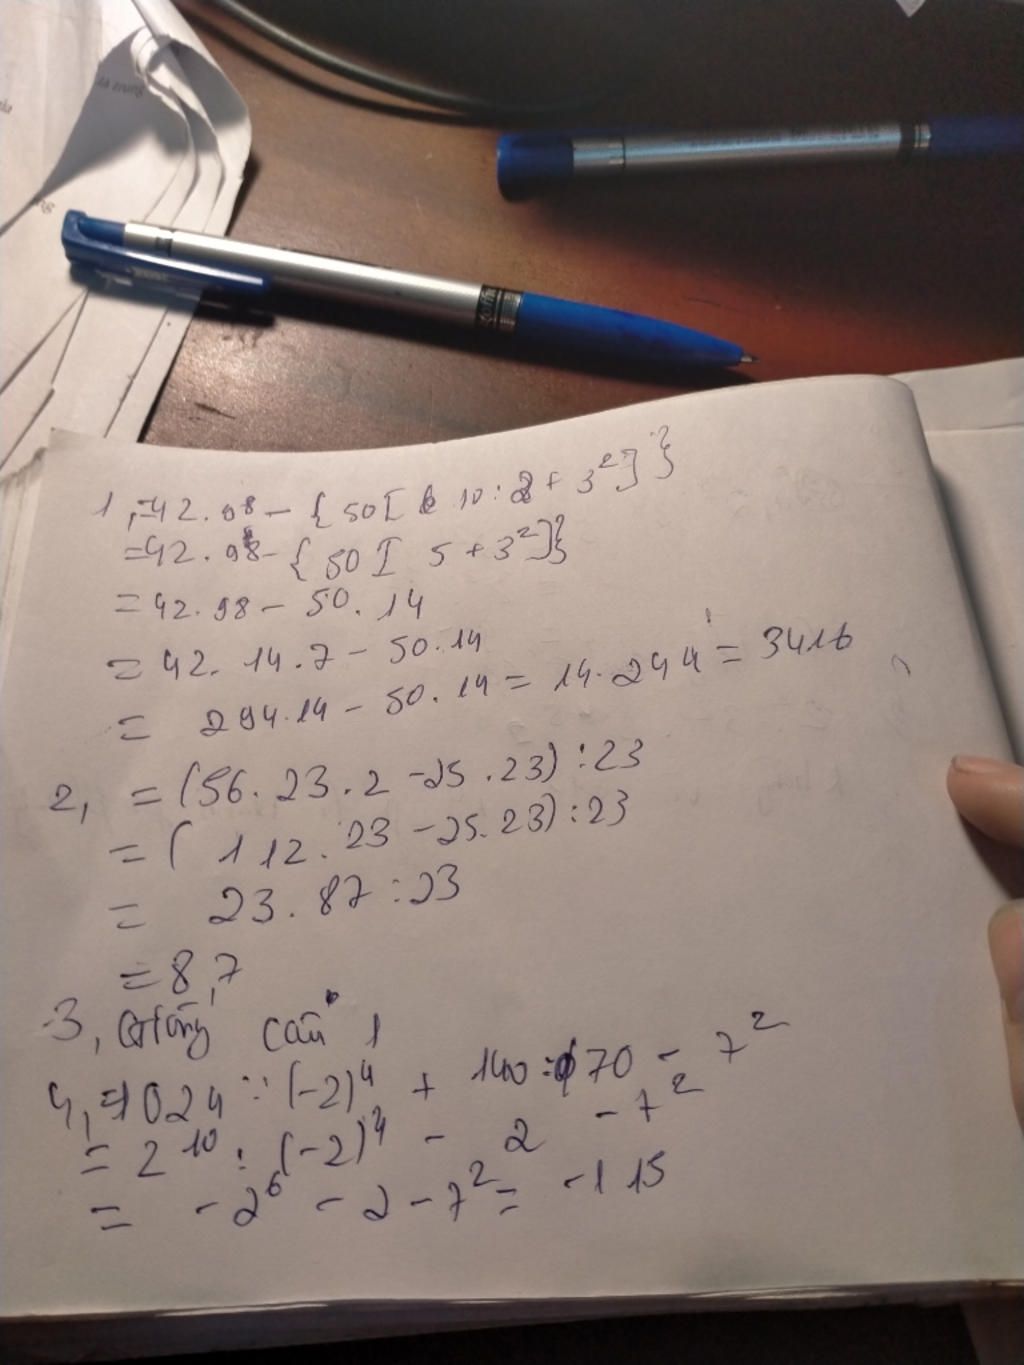 1, =42.98 - {50[ 10:2+3²]}
=42.98-{50[ 5+3²]}
=42.98-50.14
=42.14.7-50.14
= 294.14-50.14=14.244=3416
2, =(56.23.2-25.23):23
=( 112.23-25.23):23
= 23.87:23
=8,7
3, Giống câu 1
4, =1024:(-2)⁴ + 140:70 - 7²
=2¹⁰:(-2)⁴ - 2 -7²
= -2⁶ -2-7²= -115